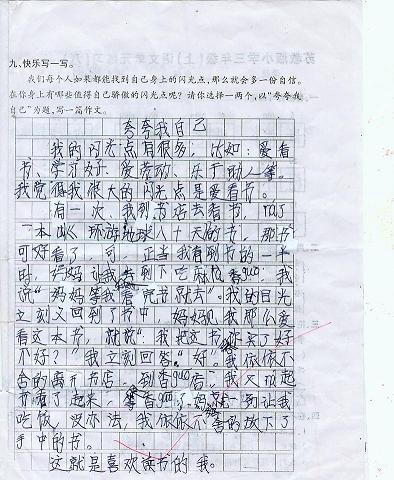 九、快乐写一写。
我们每个人如果都能找到自己身上的闪光点,那么就会多一份自信。
在你身上有哪些值得自己骄傲的闪光点呢?请你选择一两个,以“夸夸我
自己”为题,写一篇作文。
夸夸我自己
我的闪光点有很多,比如:爱看
书、学习好、爱劳动、乐于助人等。
我觉得我很大的闪光点是爱看书。
有一次,我到书店去看书,
一本叫环游地球八十天的书,那书
可好看了,可正当我看到书的一半
时,妈妈让我去到下吃麻辣香guo,我
说“妈妈等我看完书就去”。我的目光
立刻又回到了书中,妈妈见我那么爱
看这本书,就说“我把这书你买了好
不好?”我立刻回答“好”。我依依不
舍的离开书店,到香guo店,我又拿起
书看了起来,香guo了妈妈一到让我
吃饭,没办法,我依依不舍的放下了
手中的书。
这就是喜欢读书的我。